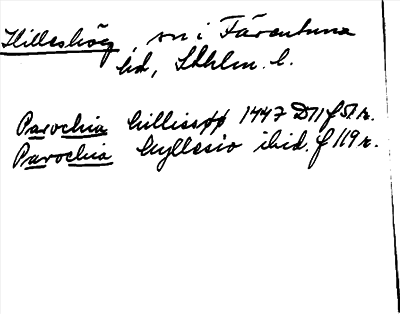 Hilleshög sn i Färentuna
hd, Sthlm. l.
Parochia hillissøø 1447 D11 f 51 r.
Parochia hyllesio ibid. f 119 r.